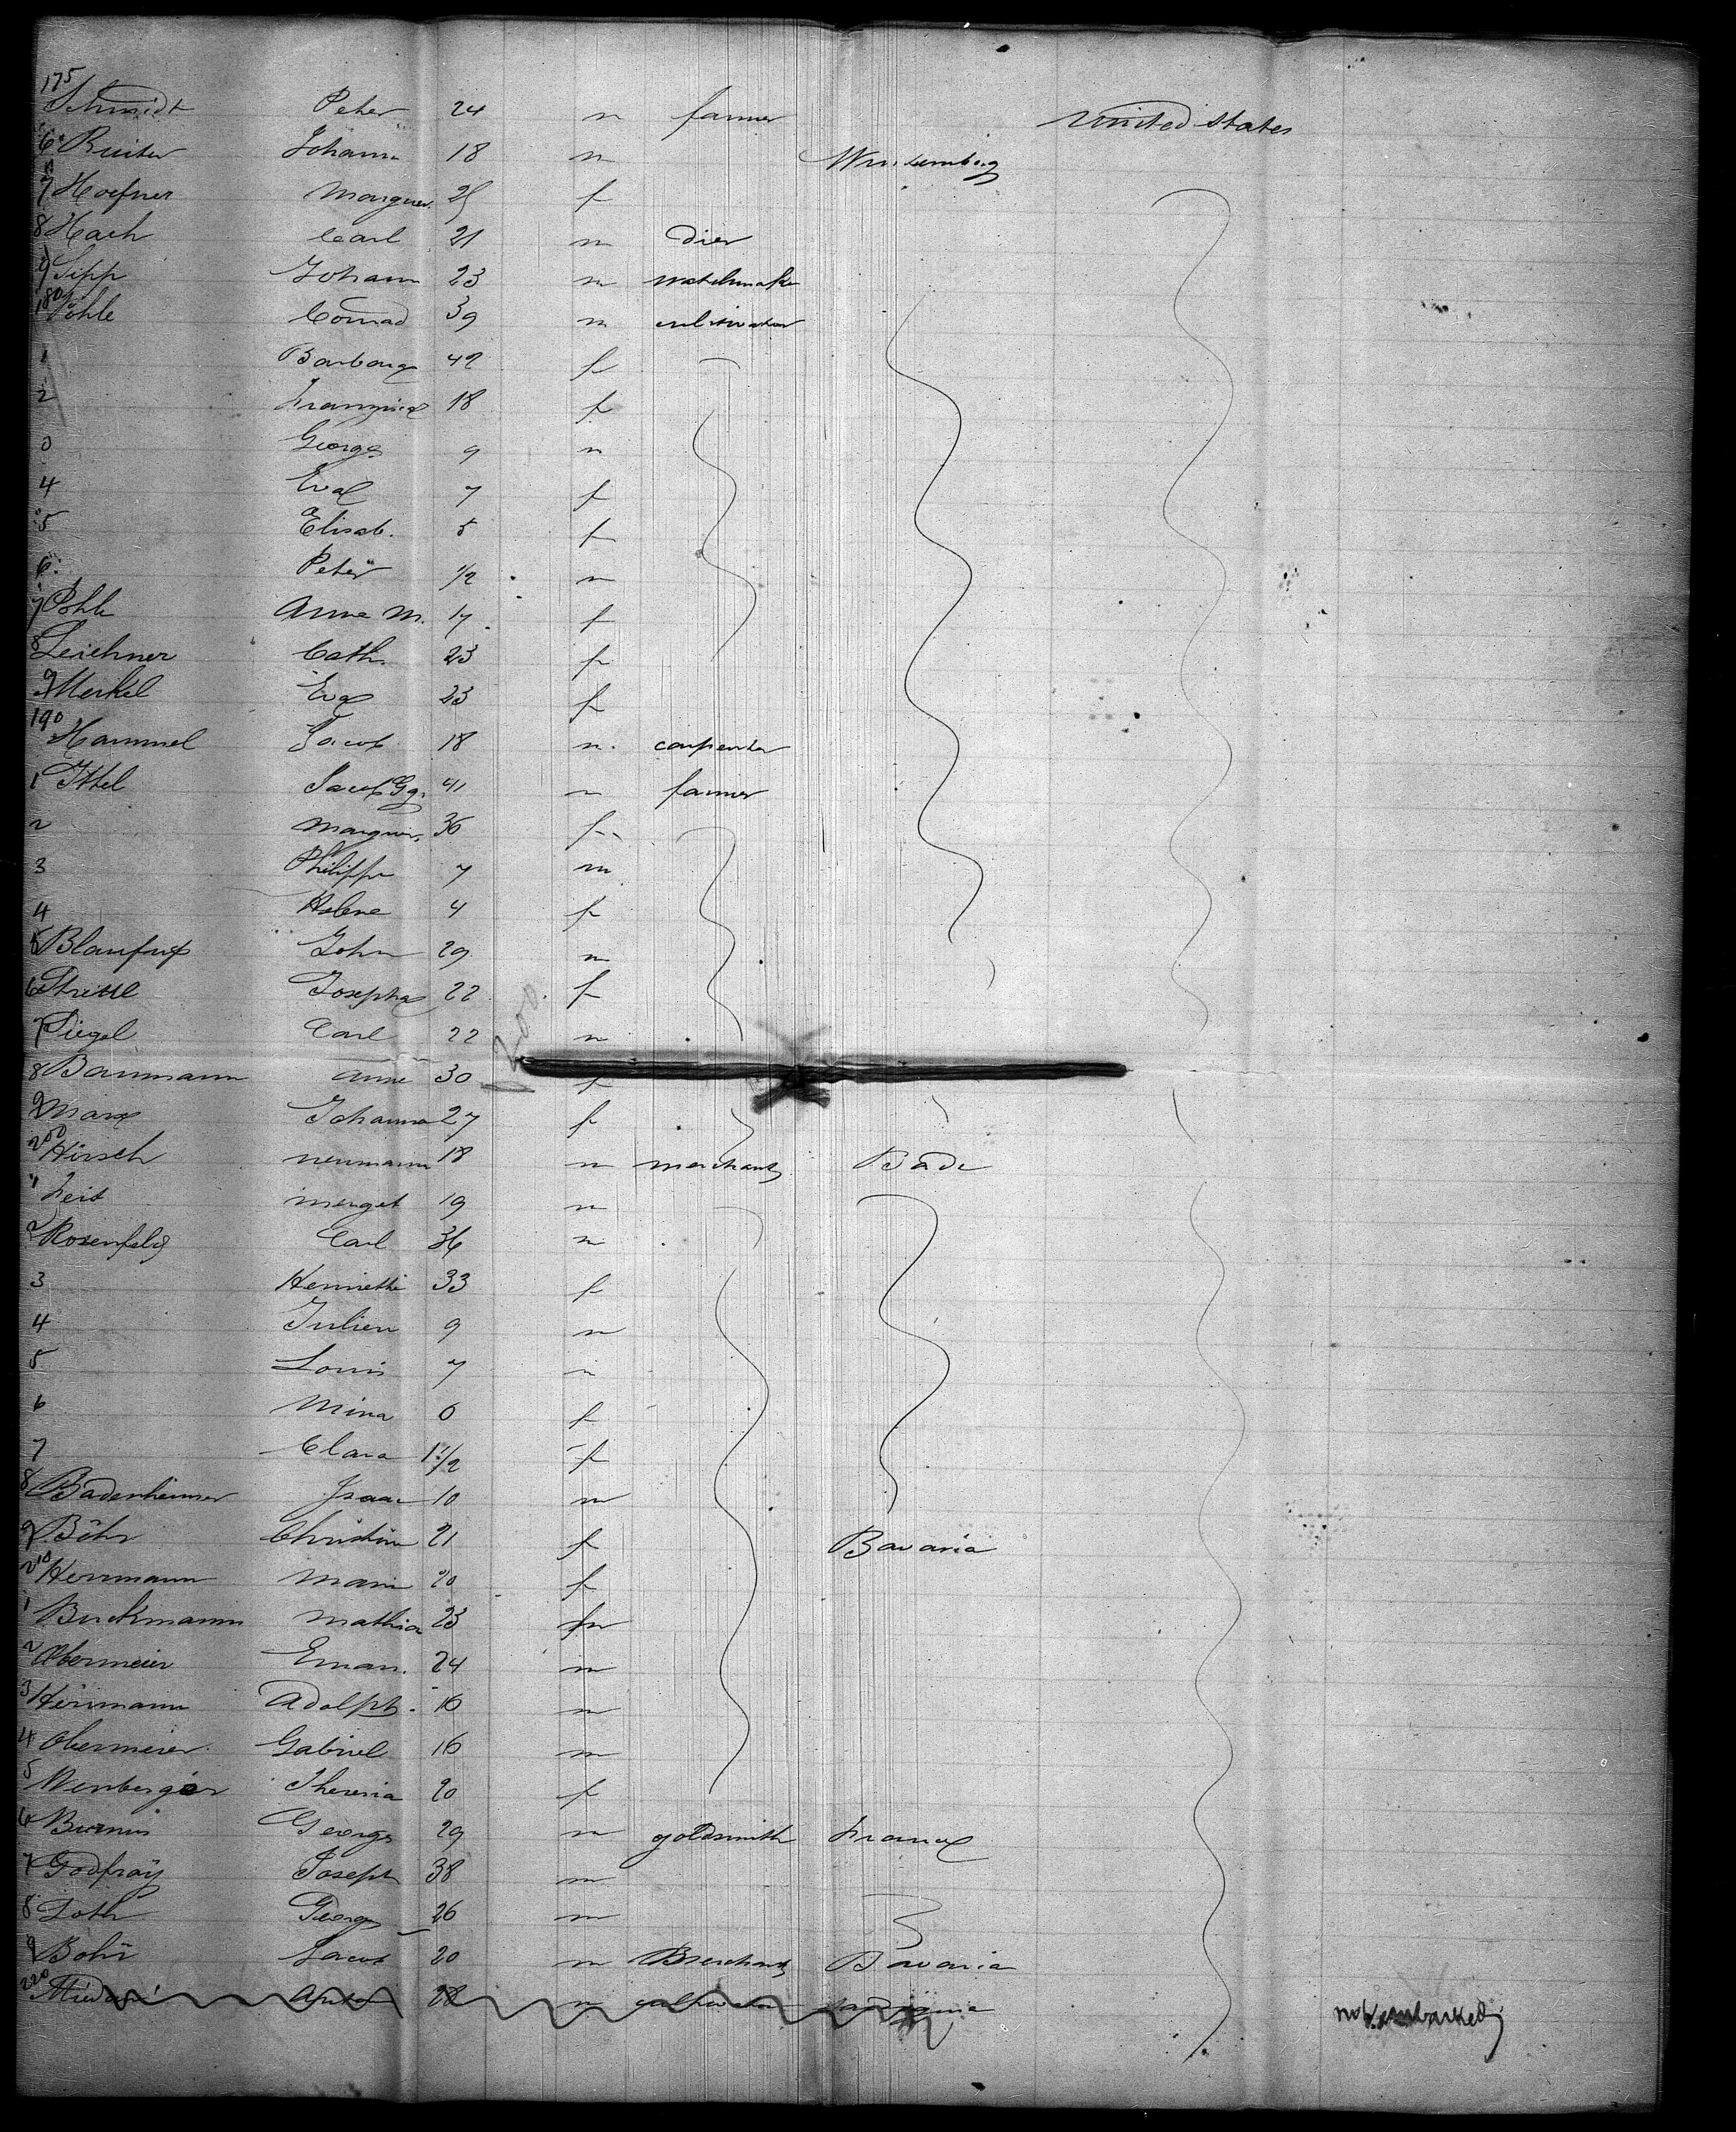 175 Schmidt Peter 24 m farmer United States
6 Reiter Johann 18 m Wurtemberg
7 Hoefner Marguer. 25 f
8 Hach Carl 21 m dier
9 Sipp Johann 23 m watchmaker
180 Pöhle Conrad 39 m cultivator
1 Barbara 42 f
2 Françisca 18 f
3 George 9 m
4 Eva 7 f
5 Elisab. 5 f
6 Peter 1/2 m
7 Pohle Anne M. 17 f
8 Leichner Cath. 23 f
9 Merkel Eva 23 f
190 Hammel Jacob 18 m carpenter
1 Ittel Jacob Gg. 41 m farmer
2 Marguer. 36 f
3 Philippe 7 m
4 Helene 4 f
5 John 29 m
6 Josepha 22 f
7 Siegel Carl 22 m
1200
8 Baumann Anne 30 f
9 Marx Johanna 27 f
200 Hirsch Neumann 18 m merchant Bade
1 Veit 19 m
2 Rosenfeld Carl 36 m
3 Henriette 33 f
4 Julien 9 m
5 Louis 7 m
6 Mina 6 f
7 Clara 1 1/2 f
8 Badenheimer Isaac 10 m
9 Böhr Christine 21 f Bavaria
210 Herrmann Marie 20 f
1 Buckmann Mathias 23 m
2 Obermeier Eman. 24 m
3 Herrmann Adolph. 16 m
4 Obermeier Gabriel 16 m
5 Wenberger Theresia 20 f
6 George 29 m goldsmith France
7 Godfroy Joseph 38 m
8 Loth George 26 m
9 Bohr Jacob 20 m Merchant Bavaria
220 28 m not embarked